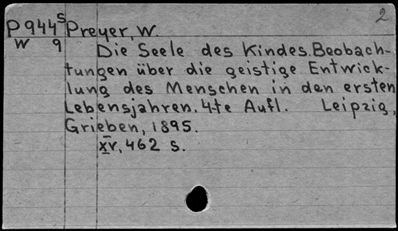 2
P944s Preyer, W.
W 9
Die Seele des Kindes. Beobach-
tungen über die geistige Entwick-
lung des Menschen in den ersten
Lebensjahren. 4te Aufl. Leipzig,
Grieben, 1895.
XV, 462 s.